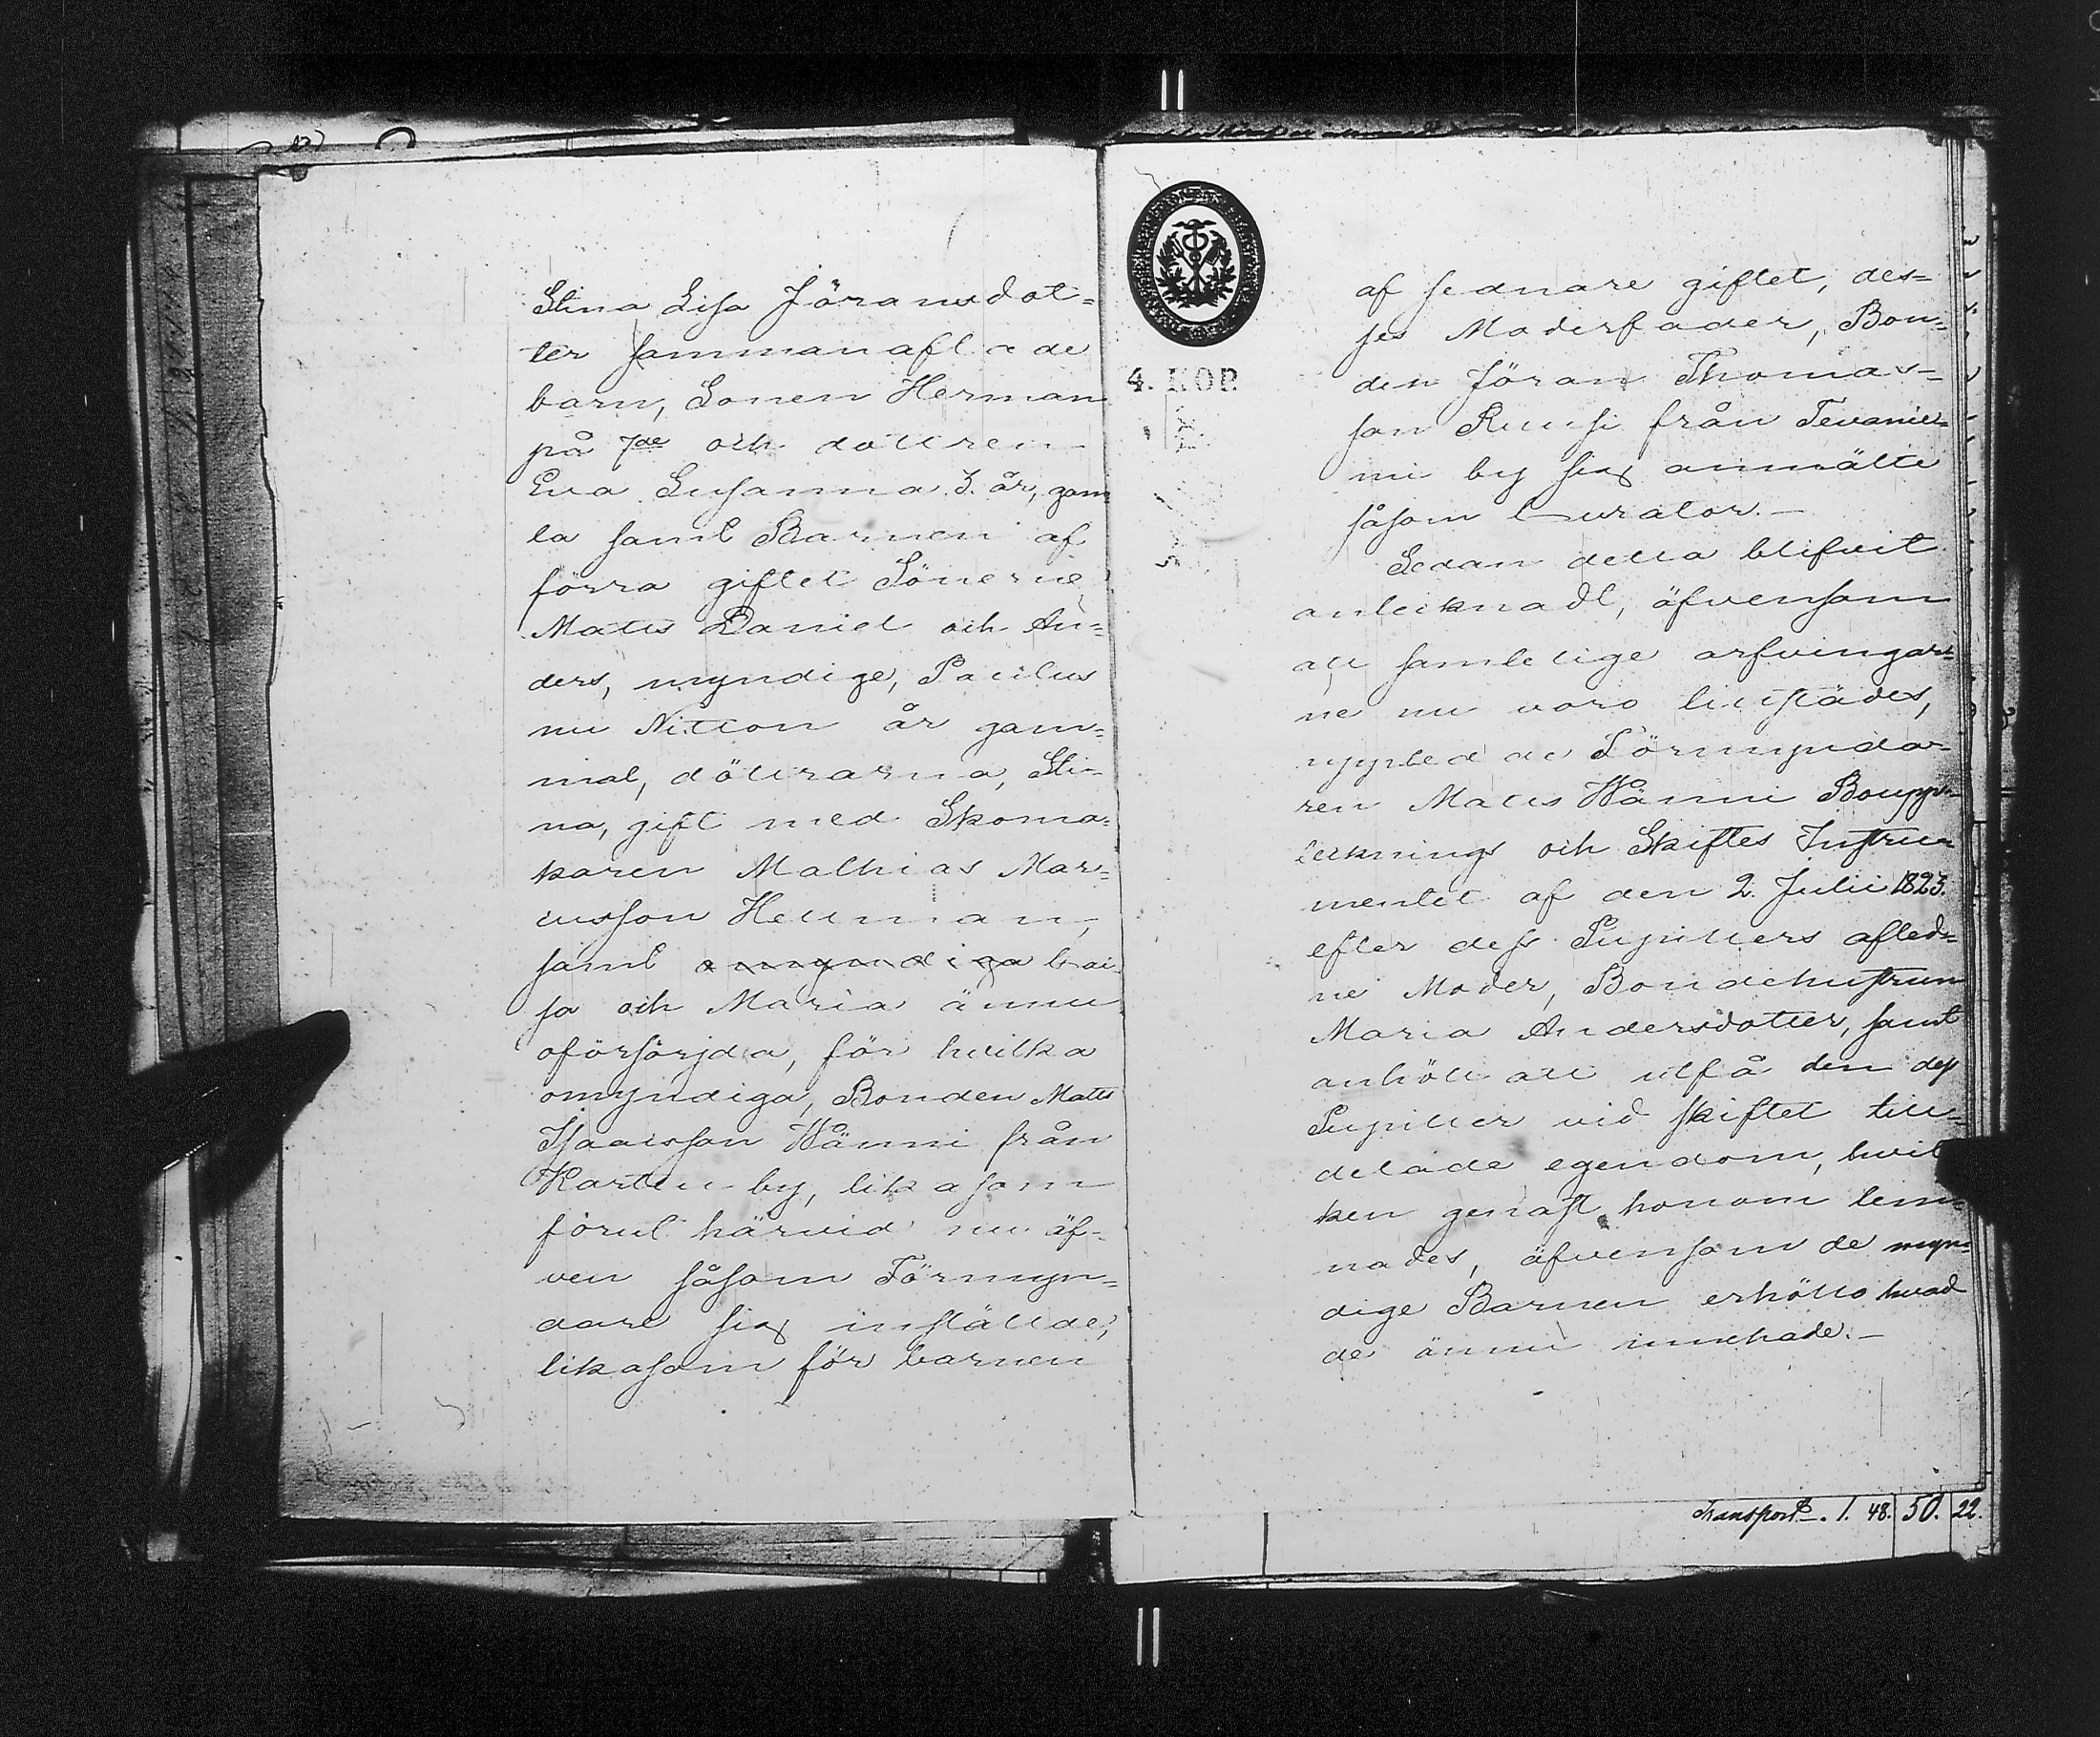 Stina Lisa Jöransdot-
ter sammanaflade
barn, Sonen Herman
på 7de och dottren
Eva Susanna 3. år, gam
la samt Barnen af
förra giftet Sönerne
Matts Daniel och An-
ders, myndige, Paulus
nu Nitton år gam-
mal, döttrarna, Sti-
na, gift med Skoma-
karen Mathias Mar-
cusson Hellman,
samt omyndiga Cai-
sa och Maria ännu
oförsörjda, för hvilka
omyndiga, Bonden Matts
Isaacsson Wänni från
Karttu by, likasom
förut härvid nu äf-
ven såsom Förmyn-
dare sig inställde,
likasom för barnen
4. KOP.
af sednare giftet, des-
ses Moderfader, Bon-
den Jöran Thomas-
son Ruusi från Tevanie-
mi by sig anmälte
såsom Curator.-
Sedan detta blifvit
antecknadt, äfvensom
att samtelige arfvingar-
ne nu voro tillstädes,
upptedde Förmynda-
ren Matts Wänni Boupp-
tecknings och Skiftes Instru-
mentet af den 2. Julii 1823.
efter dess Pupillers afled-
ne Moder, Bondehustrun
Maria Andersdotter, samt
anhöll att utfå den dess
Pupiller vid skiftet till-
delade egendom, hvil
ken genast honom lem-
nades, äfvensom de myn-
dige Barnen erhöllo hvad
de ännu innehade.-
Transport. 1. 48. 50. 22.